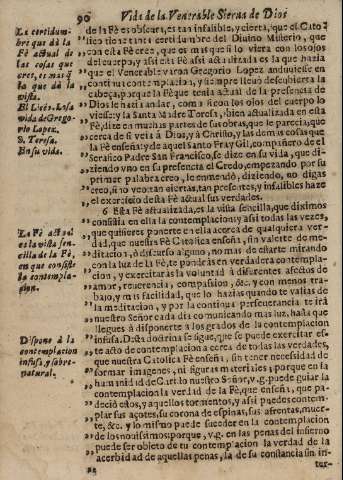 90 Vida de la Venerable Sierva de Dios
La certidum-
bre que dà la
Fè actual de
las cosas que
cree, es mas q̃
la que dà la
vista.
El Lic. Losa
vida de Grego-
rio Lopez.
S. Teresa.
En su vida.
La Fè actual
es la vista sen-
cilla de la Fè,
en que consiste
la contempla-
cion.
Dispone à la
contemplacion
infusa, y sobre-
natural.
de la Fè es obscura, es tan infalible, y cierta, que el Cato-
lico tiene tanta certidumbre del Divino Misterio, que
con esta Fè cree, que es mas que si lo viera con los ojos
del cuerpo, y assi esta Fè assi actualizada es la que hazia
que el Venerable varon Gregorio Lopez anduviesse en
continua contemplacion, y siempre llevò descubierta la
cabeça, porque la Fè que tenia actual de la presencia de
Dios le hazia andar, como si con los ojos del cuerpo lo
viesse: y la Santa Madre Teresa, bien actualizada en esta
Fè, dize en muchas partes de sus obras, que le parecia, que
cerca de si veia à Dios, y à Christo, y las demàs cosas que
la Fè enseña: y de aquel Santo Fray Gil, compañero de el
Serafico Padre San Francisco, se dize en su vida, que di-
ziendo uno en su presencia el Credo, empezando por su
primer palabra creo, le enmendò, diziendo, no digas
creo, si no veo tan ciertas, tan presentes, y infalibles haze
el exercicio desta Fè actual sus verdades.
6 Esta Fè actualizada, es la vista sencilla, que diximos
consistia en ella la contemplacion: y assi todas las vezes,
que quisieres ponerte en ella acerca de qualquiera ver-
dad, que nuestra Fè Catolica enseña, sin valerte de me-
ditacion, ò discurso alguno, no mas de estarte mirando
con la luz de la Fè, te pondràs en verdadera contempla-
cion, y exercitaràs la voluntad à diferentes afectos de
amor, reverencia, compasion, &c. y con menos tra-
bajo, y mas facilidad, que lo hazias quando te valias de
la meditacion, y por la continua perseverancia te irà
nuestro Señor cada dia comunicando mas luz, hasta que
llegues à disponerte à los grados de la contemplacion
infusa. Desta doctrina se sigue, que se puede exercitar es-
te acto de contemplacion acerca de todas las verdades,
que nuestra Catolica Fè enseña, sin tener necesidad de
formar imagenes, ni figuras materiales; porque en la
humanidad de Christo nuestro Señor, v.g. puede guiar la
contemplacion la verdad de la Fè, que enseña, que pa-
deciò estos, y aquellos tormentos, y assi puedes contem-
plar sus açotes, su corona de espinas, sus afrentas, muer-
te, &c. y lo mismo puede suceder en la contemplacion
de los novissimos; porque, v.g. en las penas del infierno
puede ser objeto de tu contemplacion la verdad de la
acerbidad de aquellas penas, la de su constancia sin in-
ter-